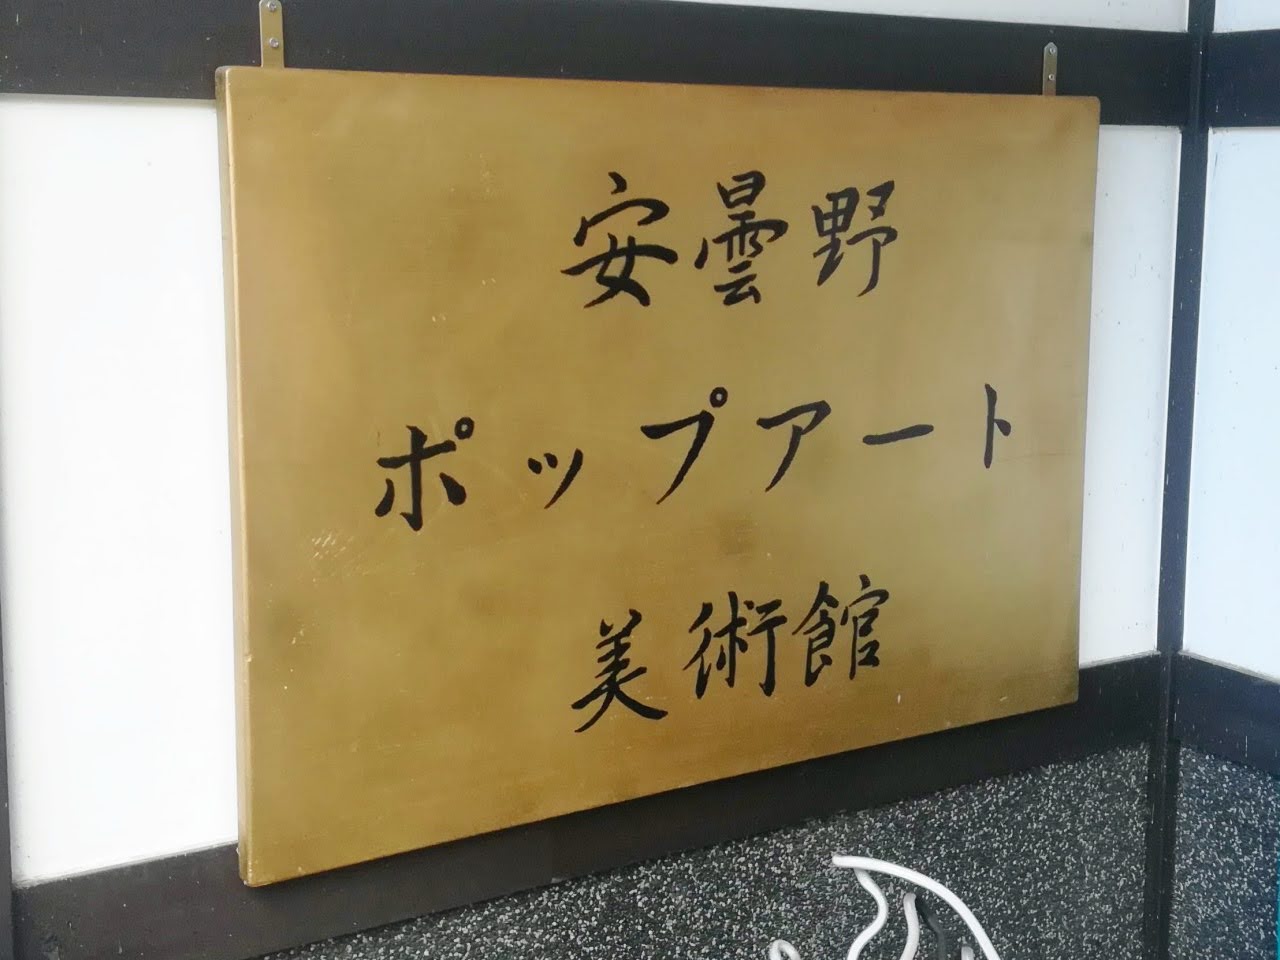 安曇野
ポップアート
美術館